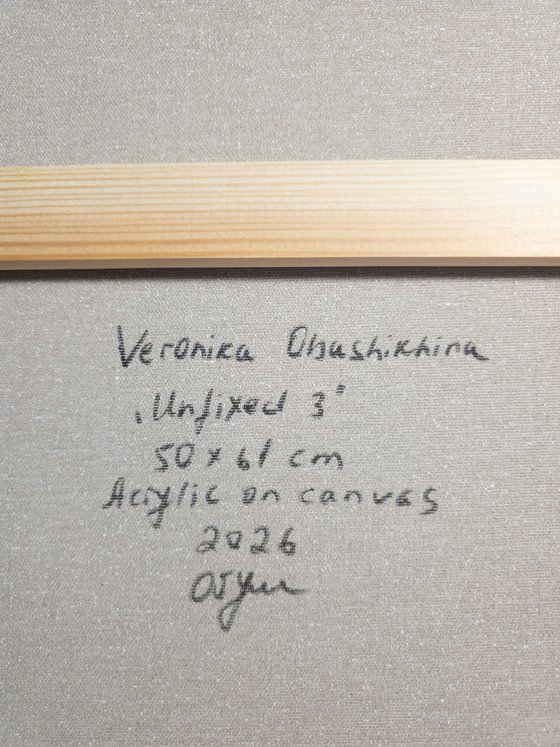 Veronika Obushikhina
"Unfixed 3"
50 x 61 cm
Acrylic on canvas
2026